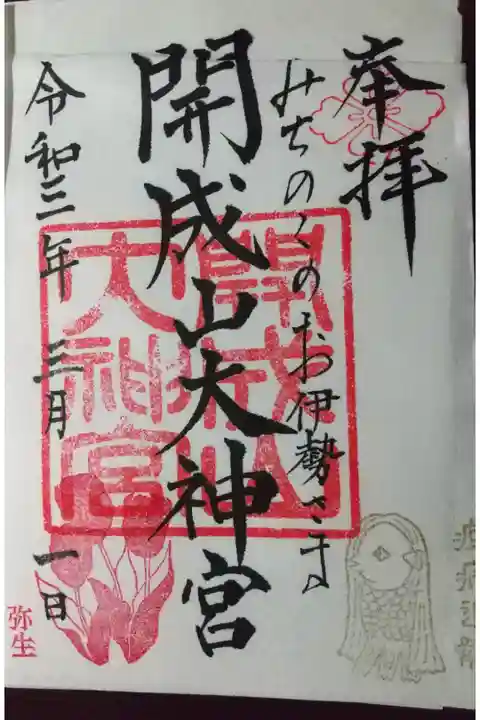 奉拝
みちのくのお伊勢さま
開成山大神宮
開成山
大神宮
令和三年 三月 一日
弥生